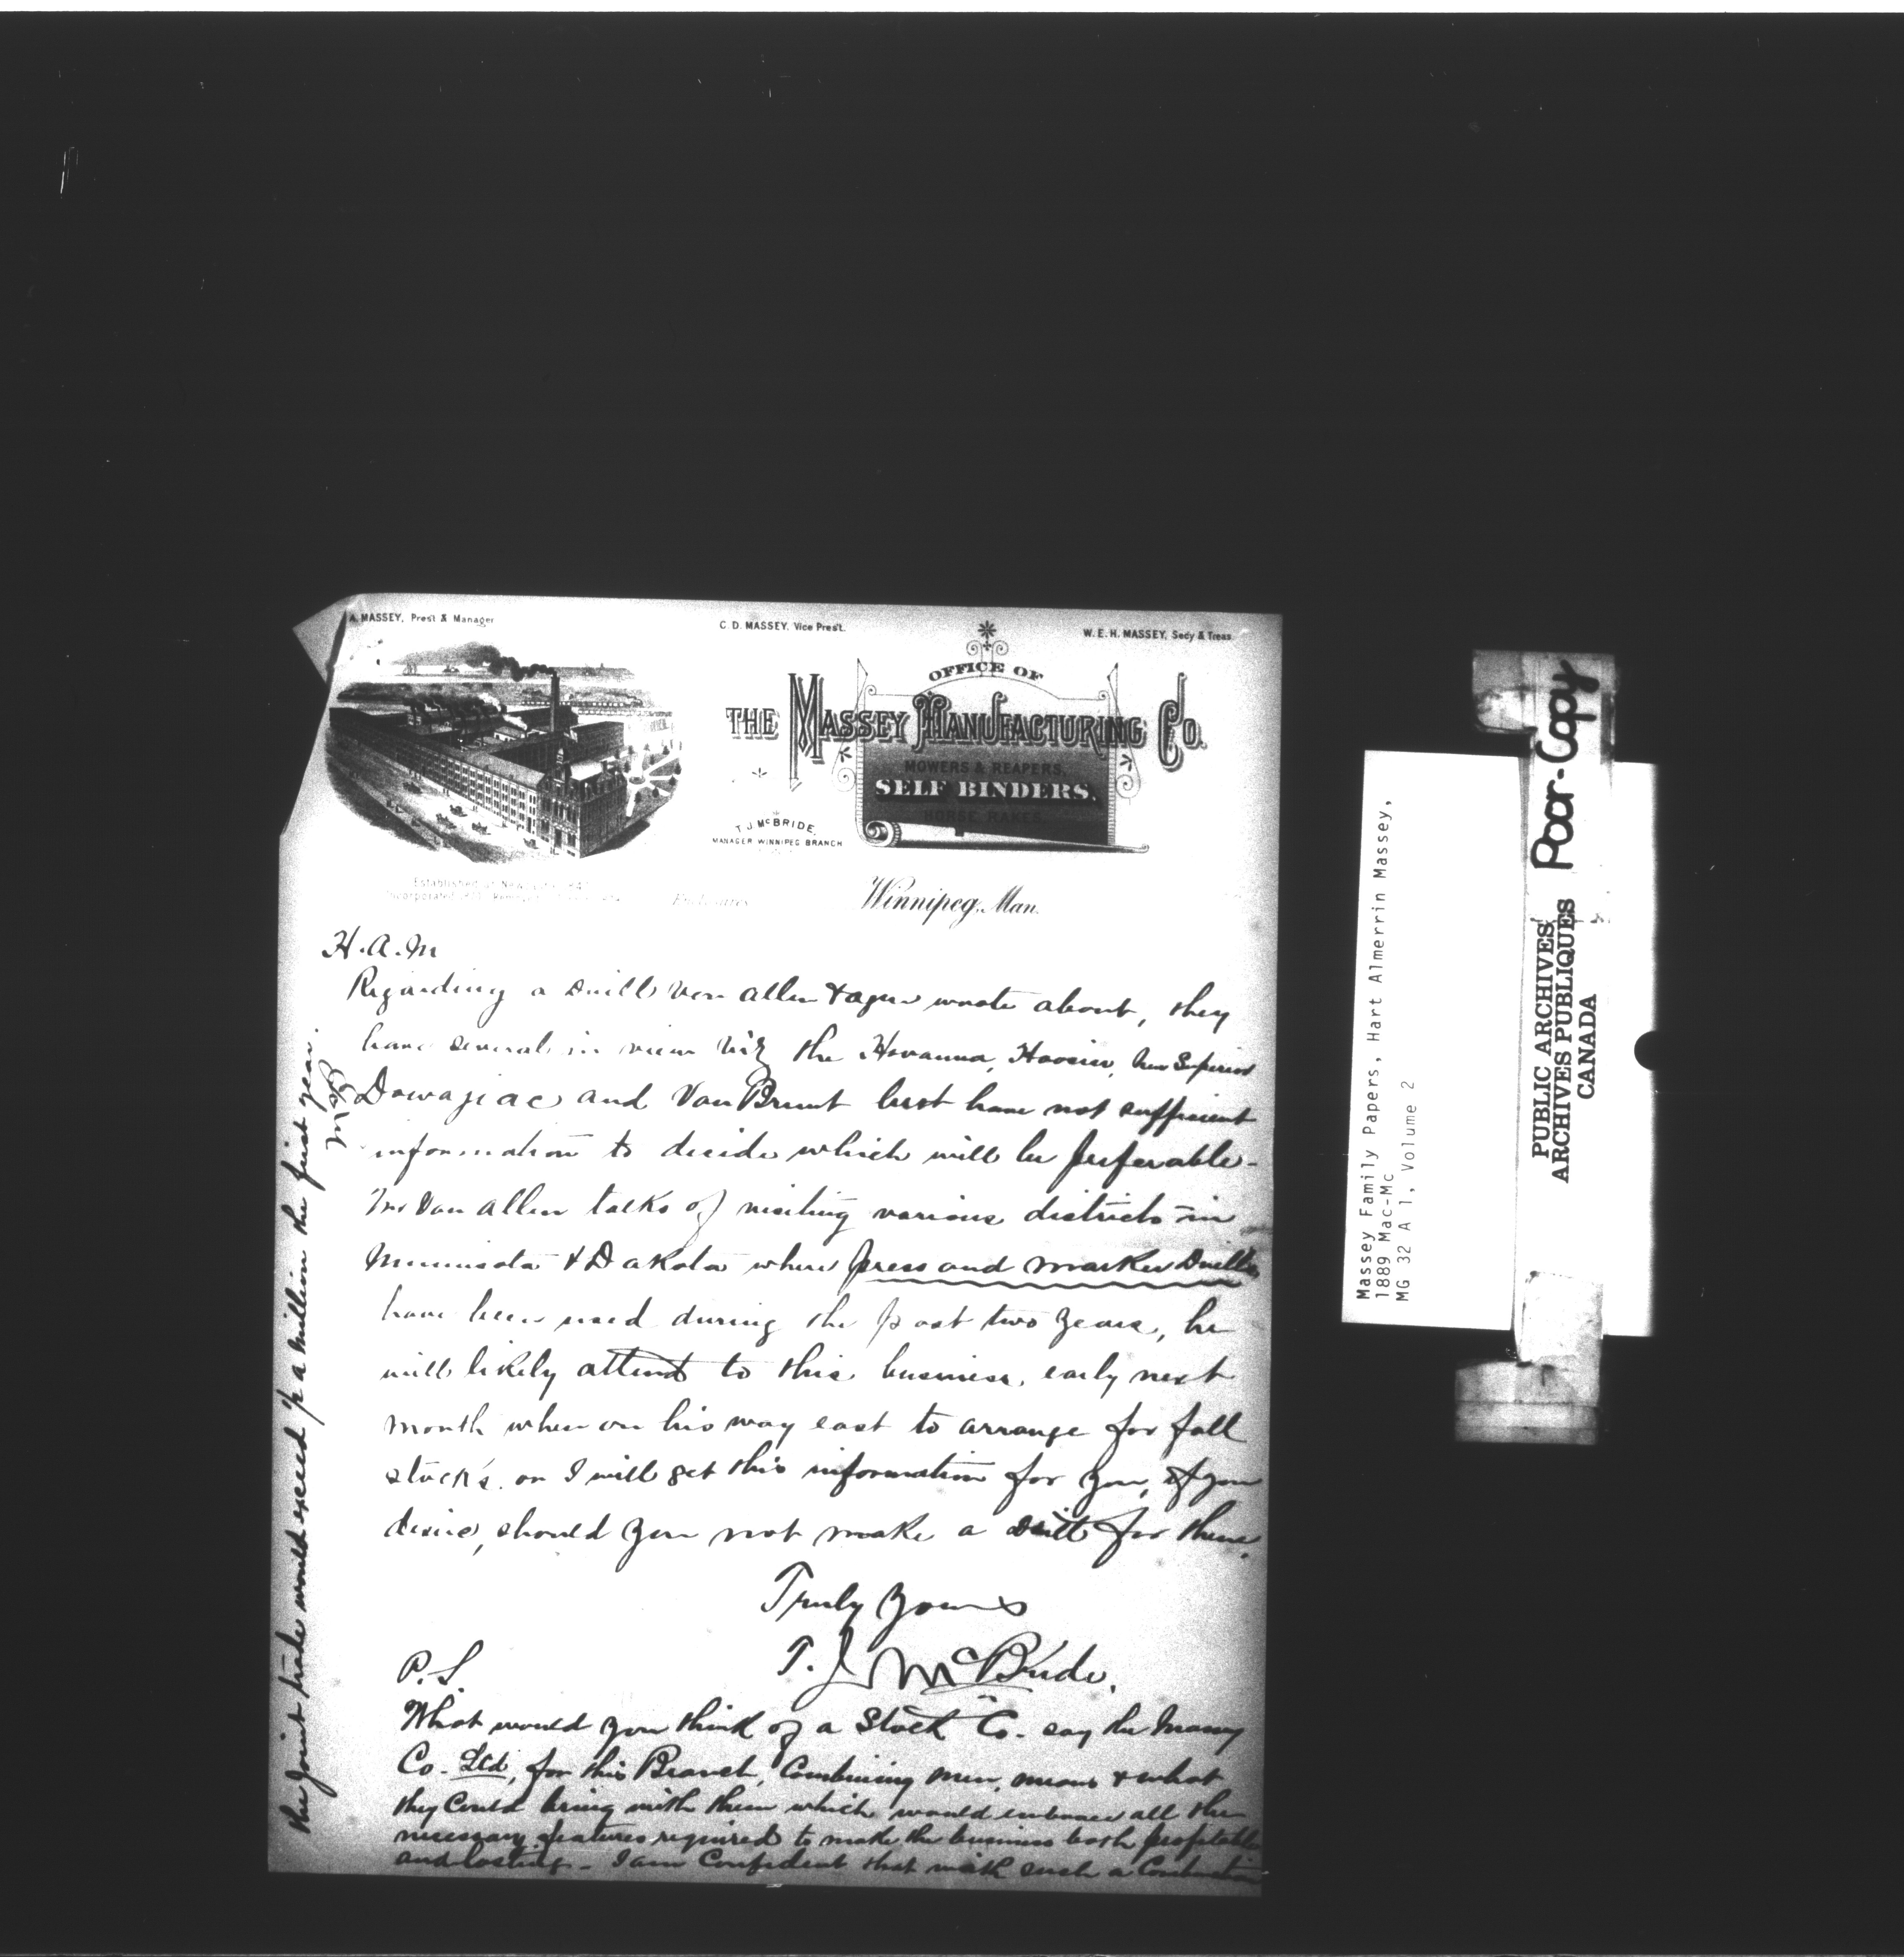 A. MASSEY, Pres't & Manager
C. D. MASSEY, Vice Pres't.
W. E. H. MASSEY, Secy & Treas.
OFFICE OF
THE MASSEY MANUFACTURING CO.
MOWERS & REAPERS,
SELF BINDERS,
HORSE RAKES
T. J. McBRIDE,
MANAGER WINNIPEG BRANCH
Winnipeg, Man.
H. A. M
Regarding a Drill Van Allen & Agur wrote about, they
have several in view viz the Havanna, Hoosier, New Superior
Dowagiac and Van Brunt but have not sufficient
information to decide which will be preferable -
Mr Van Allen talks of visiting various districts in
Minnisota & Dakota where press and marker Drills
have been used during the past two years, he
will likely attend to this business, early next
month when on his way east to arrange for fall
stocks. or I will get this information for you, if you
desire, should you not make a Drill for them,
Truly yours
T. J. McBride.
P. S.
What would you think of a Stock Co. say the Massey
Co. Ltd, for this Branch, Combining men, means & what
they Could bring with them which would embrace all the
necessary features required to make the business both profitable
and lasting - I am Confident that with such a Combination
the joint trade would exceed 1/2 a million the first year.
McB
Massey Family Papers, Hart Almerrin Massey,
1889 Mac-Mc
MG 32 A 1, Volume 2
Poor-Copy
PUBLIC ARCHIVES
ARCHIVES PUBLIQUES
CANADA